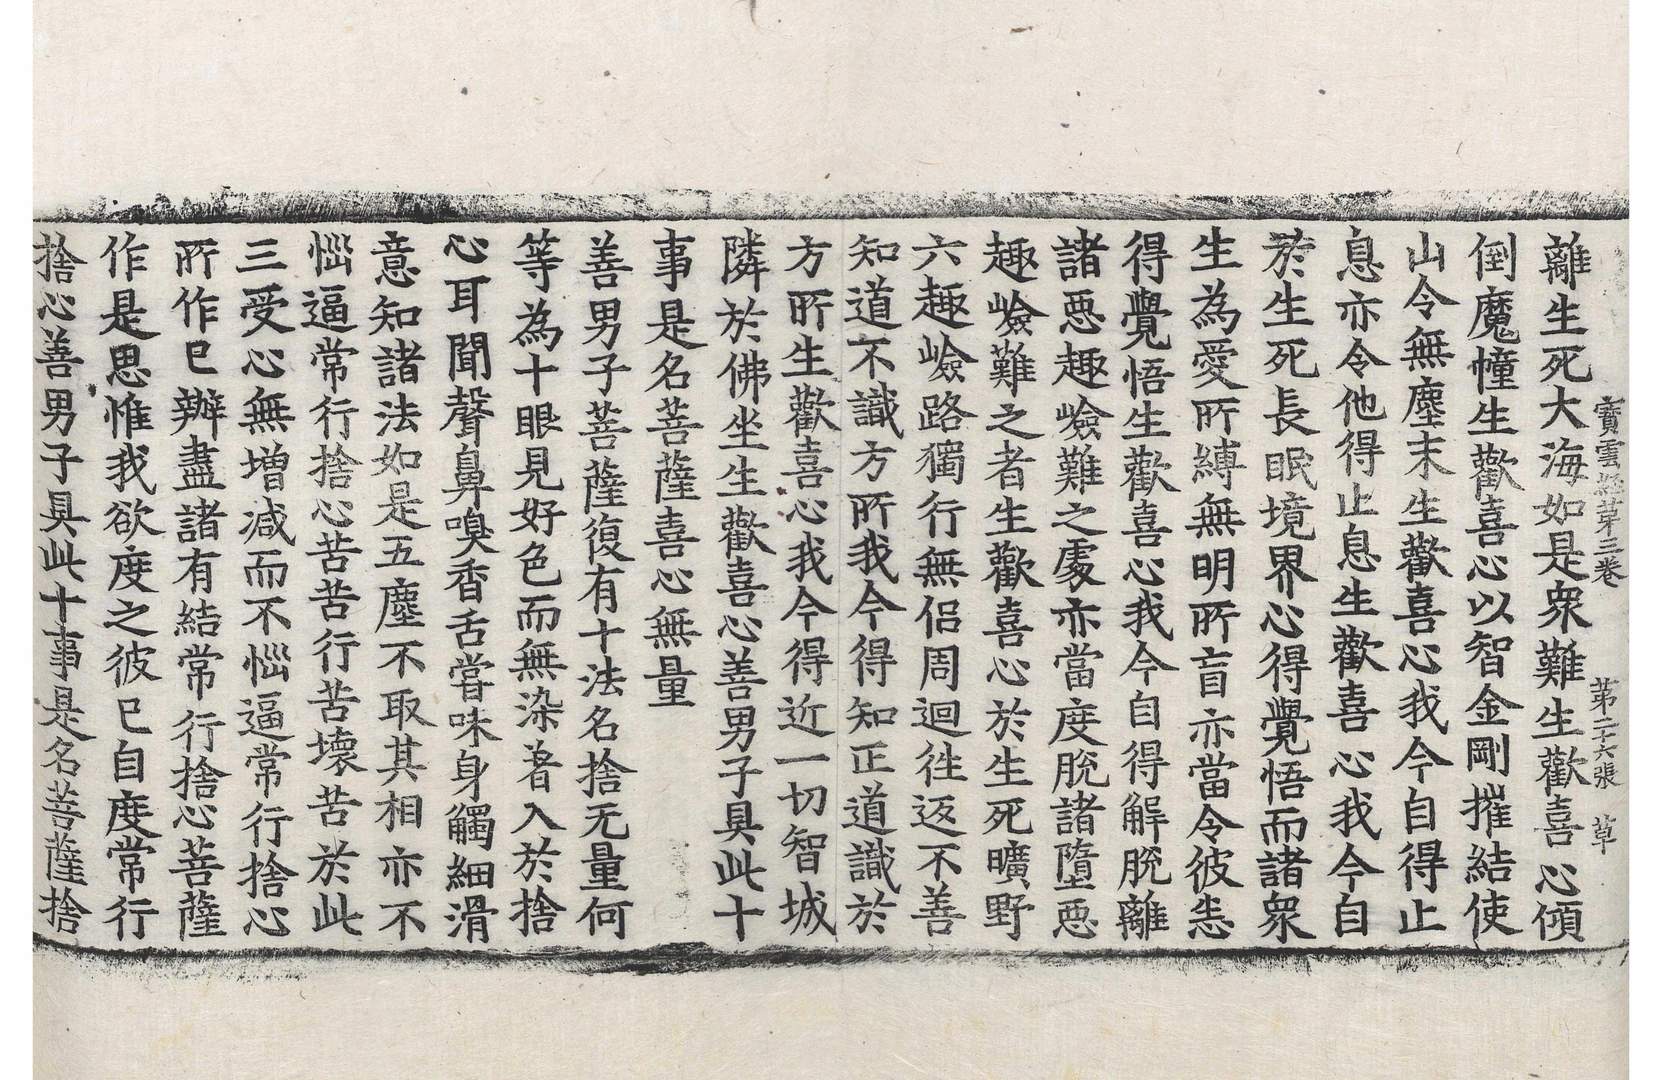 寶雲經第三卷 第二十六張 草
離生死大海如是衆難生歡喜心傾
倒魔幢生歡喜心以智金剛摧結使
山令無塵末生歡喜心我今自得止
息亦令他得止息生歡喜心我今自
於生死長眠境界心得覺悟而諸衆
生為愛所縛無明所盲亦當令彼恙
得覺悟生歡喜心我今自得解脫離
諸惡趣嶮難之處亦當度脫諸墮惡
趣嶮難之者生歡喜心於生死曠野
六趣嶮路獨行無侣周迴徃返不善
知道不識方所我今得知正道識於
方所生歡喜心我今得近一切智城
隣於佛坐生歡喜心善男子具此十
事是名菩薩喜心無量
善男子菩薩復有十法名捨无量何
等為十眼見好色而無染著入於捨
心耳聞聲鼻嗅香舌甞味身觸細滑
意知諸法如是五塵不取其相亦不
惱逼常行捨心苦苦行苦壞苦於此
三受心無增减而不惱逼常行捨心
所作已辦盡諸有結常行捨心菩薩
作是思惟我欲度之彼已自度常行
捨心善男子具此十事是名菩薩捨